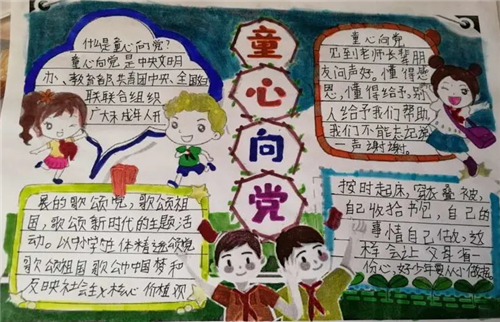 童心向党
什么是童心向党?
童心向党是中央文明
办、教育部、共青团中央、全国妇
联联合组织
广大未成年人开
展的歌颂党,歌颂祖
国,歌颂新时代的主题活
动。以中小学生体精造颂党
歌颂祖国歌公中中国梦和
反映社会主义核心价植观
童心向党
见到老师长辈朋
友问声好。懂得感
恩,懂得给予,别
人给予我们帮助
我们不能忘记说
一声谢谢。
按时起床,叠被,
自己收拾书包,自己的
事情自己做。这
样会让父母有
份心,好少年要从小做起